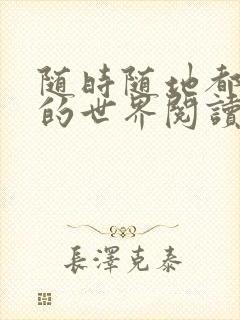 随時随地都
的世界閱讀
長澤克泰